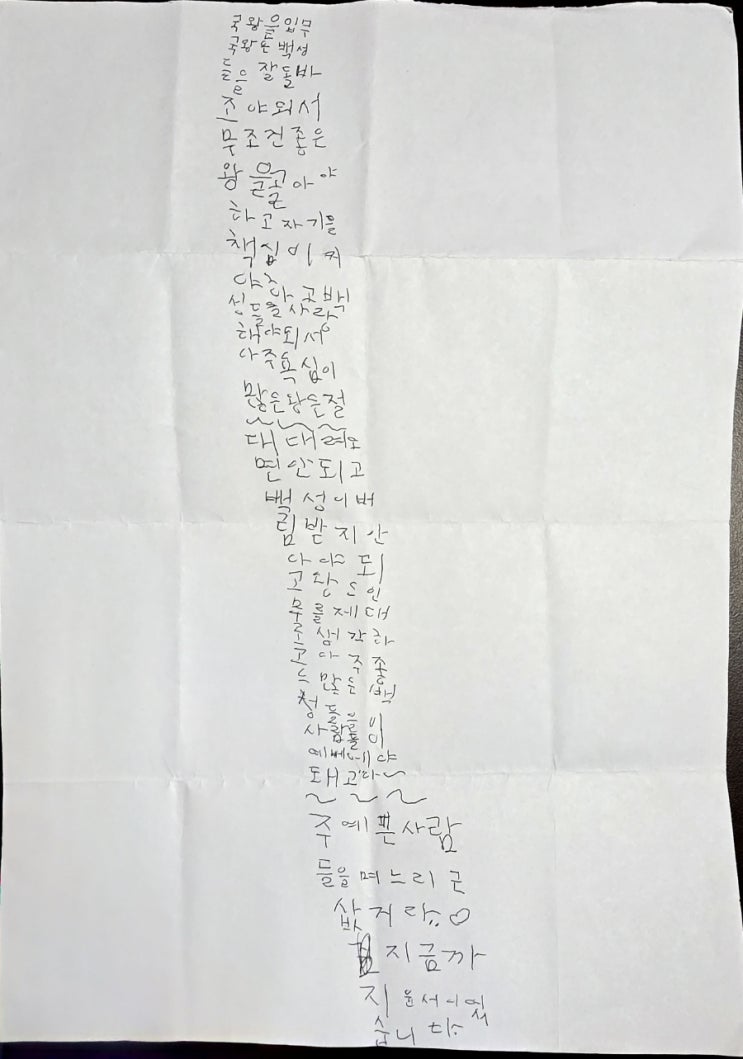 국왕을입무
국왕은백성
들을 잘돌바
조야되서
무조건좋은
왕을골아야
하고자기를
책심이커
야하고백
성들을사랑
해야되서
아주욕심이
많은왕은절
대대려오
면안되고
백성이버
림받지안
아야되
고왕도인
무를제대
로생각하
고아주종
느많은백
청들을이
사람들이
예뻐해야
돼고아~
주예쁜사람
들을며느리로
삼거라
지금까
지윤서이여
습니다